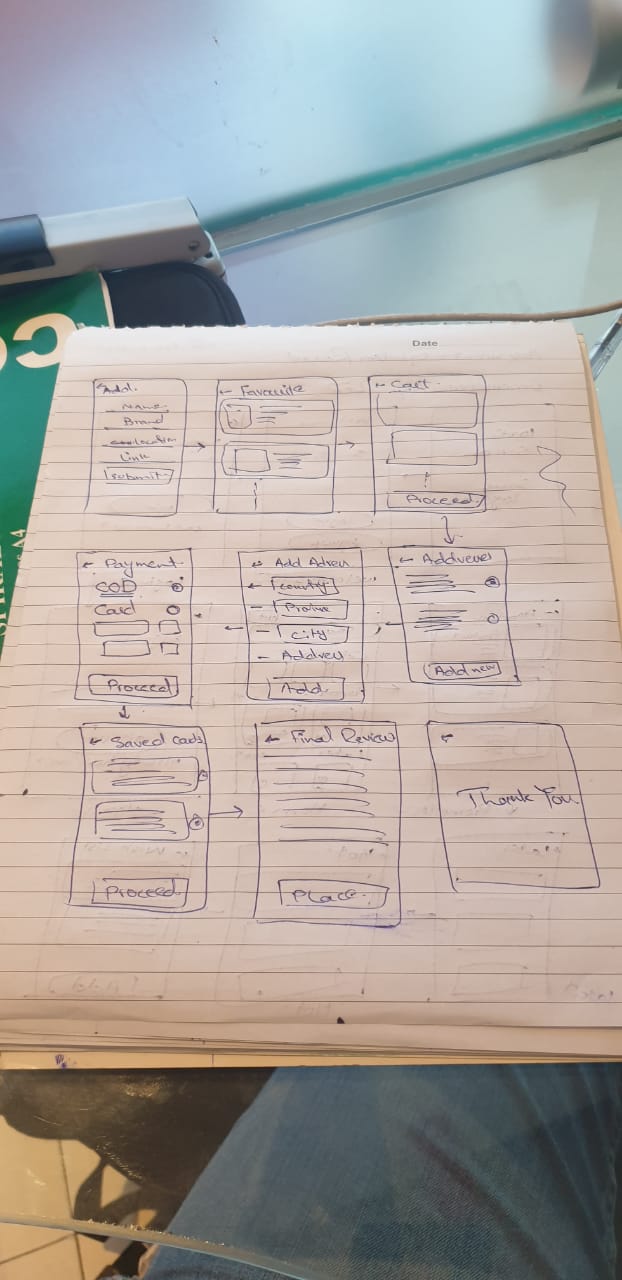 Date
← Add.
Name
Brand
Link
Submit
← Favourite
← Cart
Proceed
← Payment
COD
Card
Proceed
← Add
country
city
Address
Add
←
Add new
← Saved Cads
Proceed
← Final Review
Place
←
Thank You